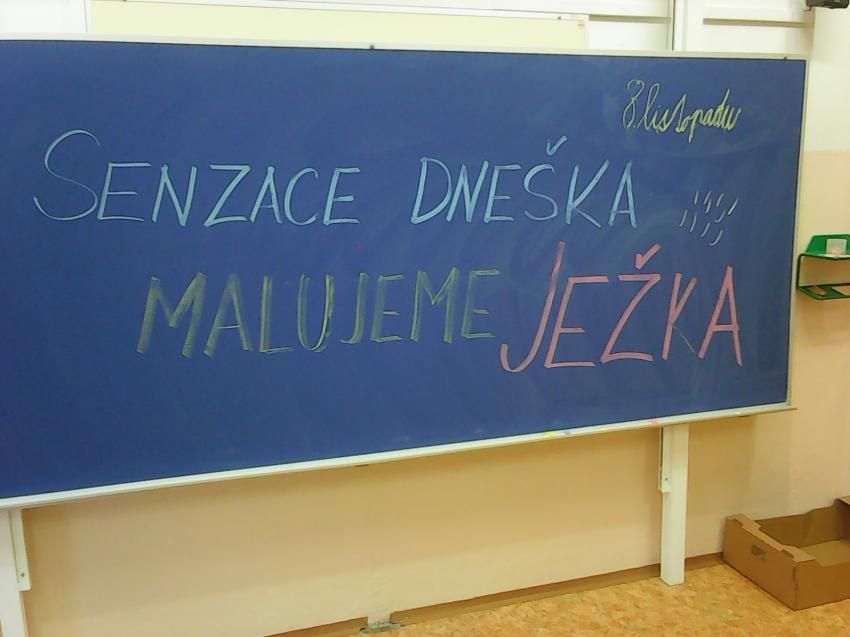 8. listopadu
SENZACE DNEŠKA
MALUJEME JEŽKA